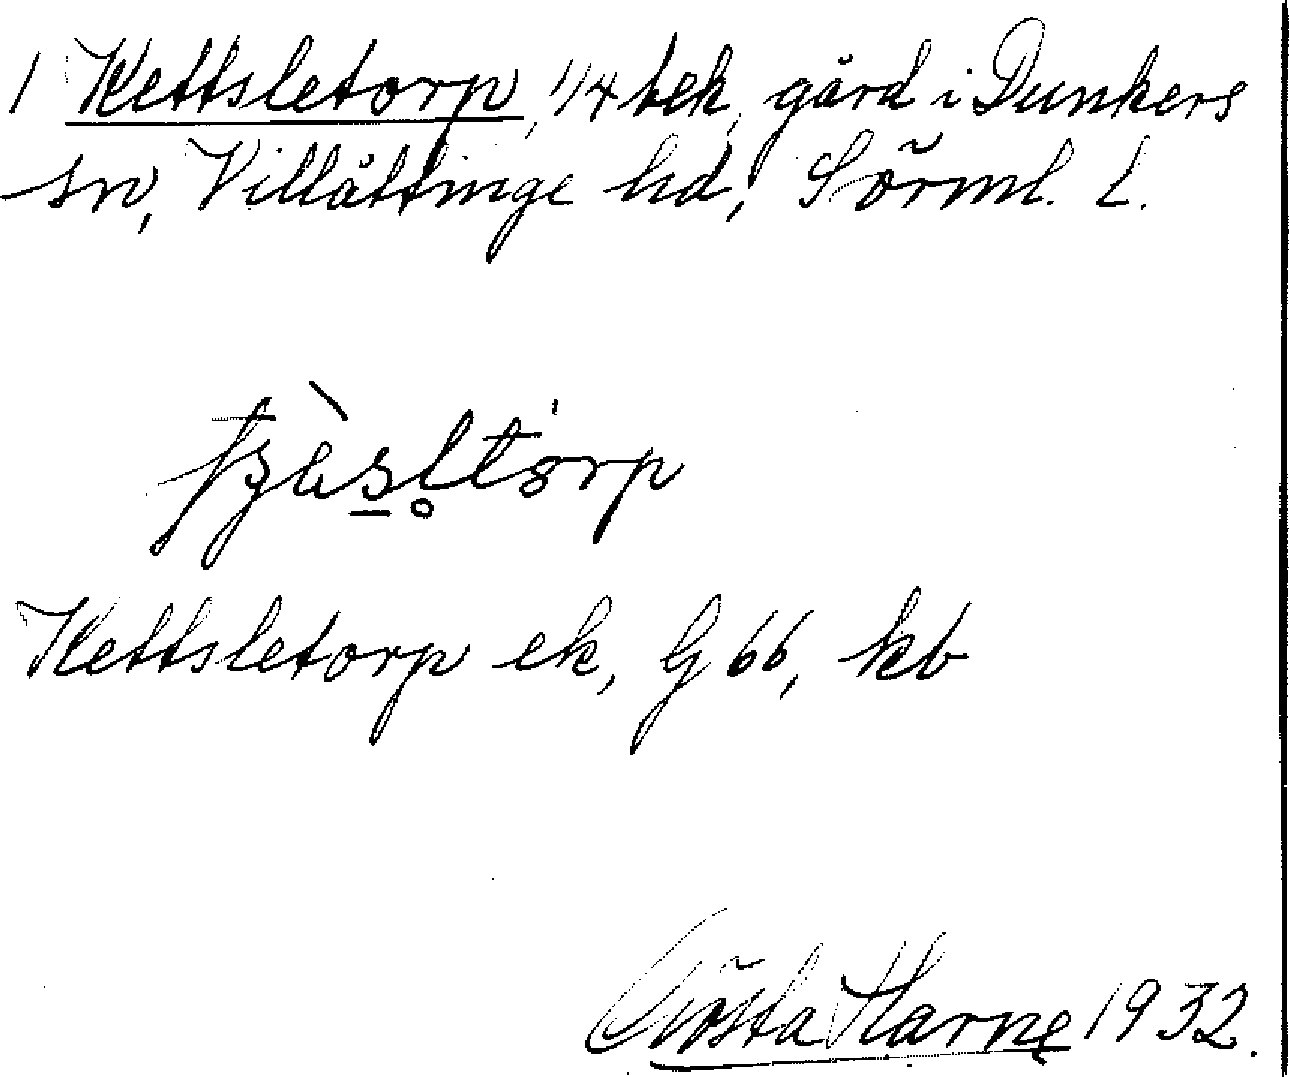 1 Kettsletorp, 1/4 bek, gård i Dunkers
sn, Villåttinge hd, Sörml. L.
Kettsletorp ek, G 66, kb
Gösta Harne 1932.